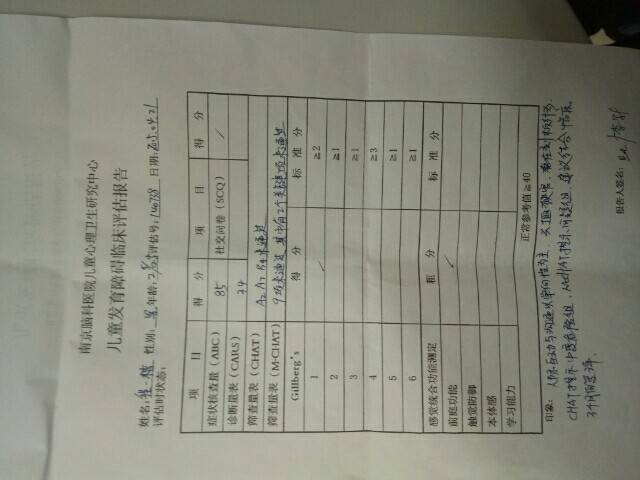 南京脑科医院儿童心理卫生研究中心
儿童发育障碍临床评估报告
姓名: 性别: 男 年龄: 评估号: 日期:
评估时状态:
项 目 得 分 项 目 得 分
症状核查量(ABC) 85 社交问卷(SCQ) /
诊断量表(CARS) 34
筛查量表(CHAT) A5 A7 B4未通过
筛查量表(M-CHAT) 9项未通过,其中有2个关键项未通过
Gillberg's 得 分 标 准 分
1 / ≥2
2 ≥1
3 ≥1
4 ≥3
5 ≥1
6 ≥1
感觉统合功能测定 粗 分 标 准 分
前庭功能 /
触觉防御
本体感
学习能力
正常参考值≥40
印象: 人际互动与沟通以单向性为主, 兴趣狭窄, 存在刻板行为
CHAT提示中度高危组, M-CHAT提示问题组, 建议结合临床
3个月后复评.
报告人签名: